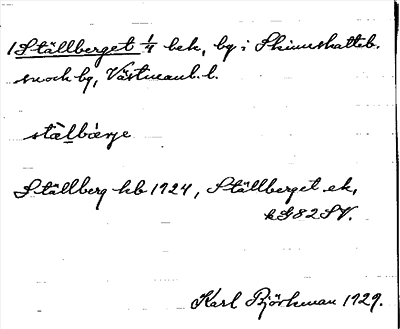 1 Ställberget 1/4 bek, by i Skinnskatteb.
snoch by, Västmanl. l.
stälbärje
Ställberg kb 1924, Ställberget ek,
282 SV.
Karl Björkman 1929.